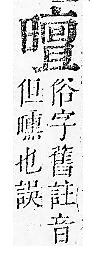 俗字舊註音
但曛也誤